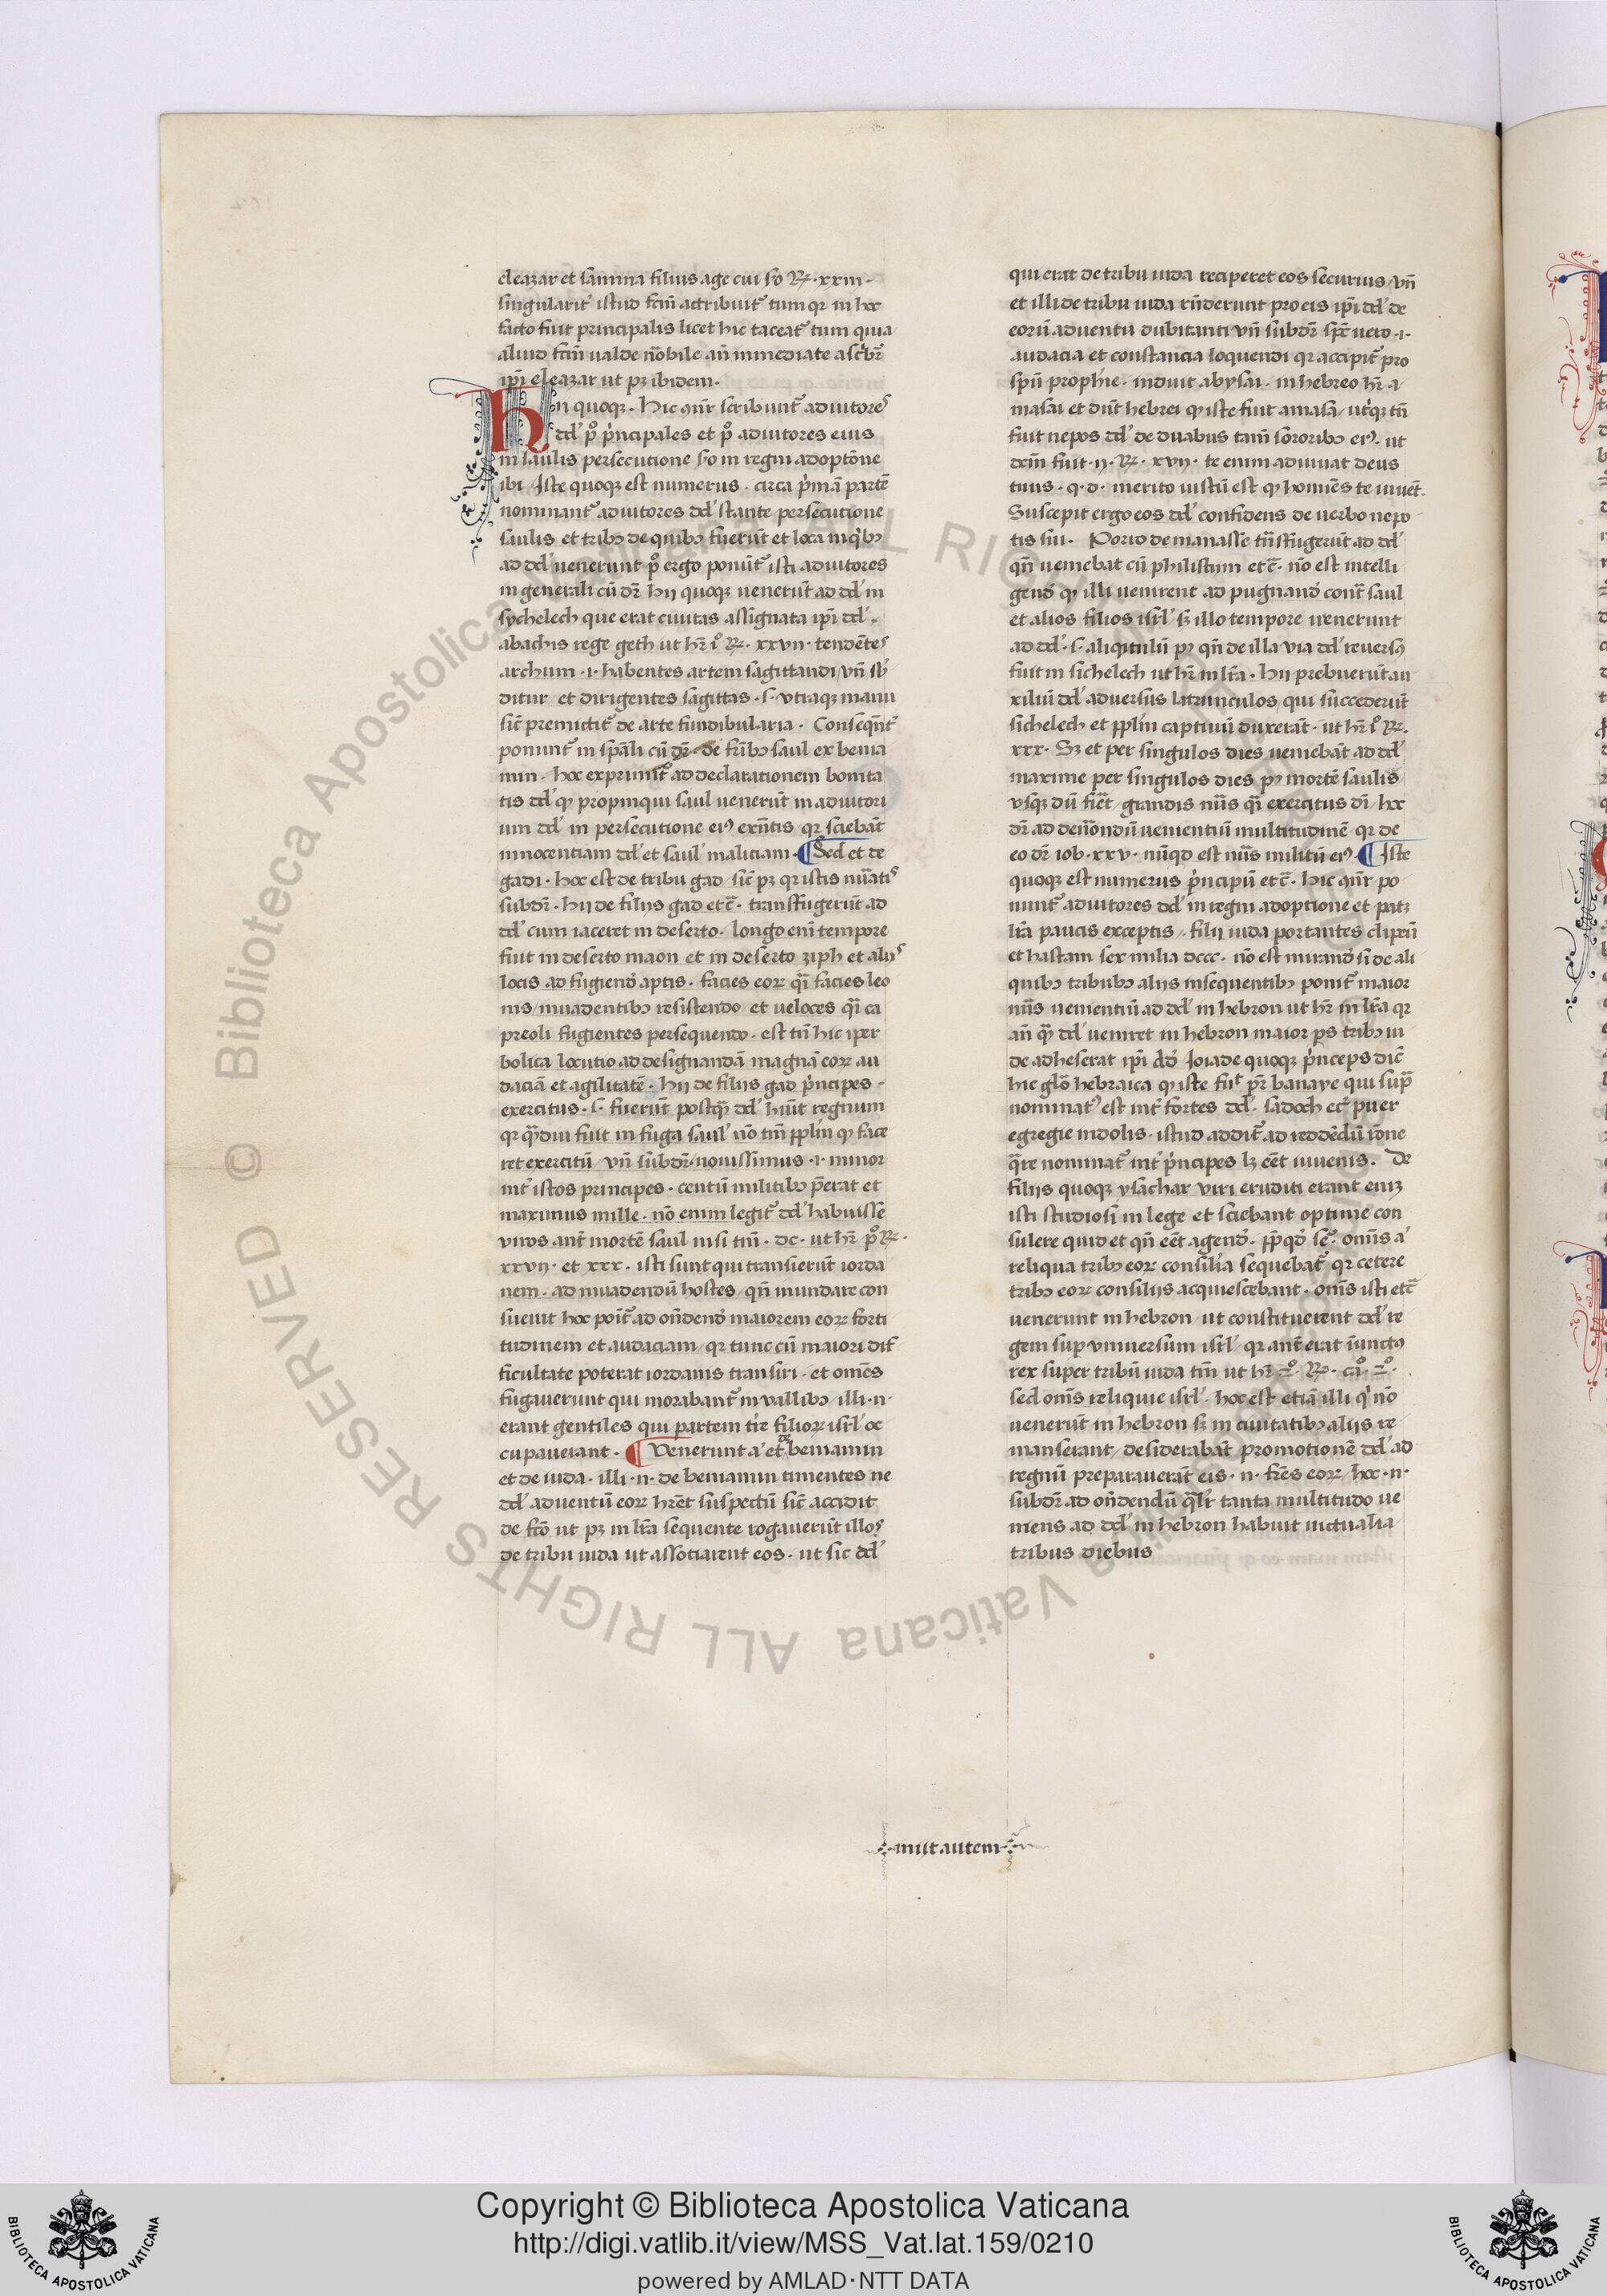 eleazar et samma filius age cui so R͛ · xxiii ·
singularit᷑ istud fcm̄ attribuit᷑ tum qꝛ in hoc
facto fuit principalis licet hic taceat᷑ tum quia
aliud fcm̄ ualde nobile an̄ inmediate asc'br̄
ip̄i eleazar ut pꝫ ibidem ·
Hii quoqꝫ · Hic qn̄r scribunt᷑ adiutores
dd' pº p'ncipales et pº adiutores eius
in saulis persecucione so in regni adoptōne
ibi / Iste quoqꝫ est numerus · circa p'mā partē
nominant᷑ adiutores dd' stante persecutione
saulis et tribꝫ de quibꝫ fuerūt et loca in q'bꝫ
ad dd' uenerunt pº ergo ponūt᷑ isti adiutores
in generali cū dr̄ hij quoqꝫ uenerūt ad dd' in
sychelech que erat ciuitas assignata ip̄i dd'
abachis rege geth ut hr̄ iº R͛ · xxvii · tendētes
archum · i · habentes artem sagittandi / vn̄ sb'
ditur et dirigentes sagittas · s · vtraqꝫ manu
sic̄ premictit᷑ de arte fundibularia · Conseqn̄t᷑
ponunt᷑ in spāli cū dr̄ · de fr̄ibꝫ saul ex benia
min · hoc exprimit᷑ ad declarationem bonita
tis dd' ꝙ propinqui saul uenerūt in adiutori
um dd' in persecutione eiꝰ exn̄tis qꝛ sciebāt
innocentiam dd' et saul' maliciam · ¶ Sed et de
gadi · hoc est de tribu gad / sic̄ pꝫ qꝛ istis nūatis
subdr̄ · hij de filijs gad etc̄ · transfugerūt ad
dd' cum iaceret in deserto · longo eni tempore
fuit in deserto maon et in deserto ziph et alijs
locis ad fugiend' aptis · facies eoꝝ q̄i facies leo
nis / inuadentibꝫ resistendo / et ueloces q̄i ca
preoli fugientes persequendo · est tn̄ hic iper
bolica locutio ad designandā magnā eoꝝ au
daciā et agilitatē · hij de filijs gad p'ncipes ·
exercitus · s · fuerūt postq̄ dd' hūit regnum
qꝛ q̄diu fuit in fuga saul' nō tm̄ pplm̄ ꝙ face
ret exercitū / vn̄ subdr̄ / nouissimus · i · minor
int᷑ istos principes · centū militibꝫ p̄erat et
maximus mille · nō enim legit᷑ dd' habuisse
viros an̄t mortē saul nisi tm̄ · dc · ut hr̄ pº R͛ ·
xxvii · et xxx · isti sunt qui transierūt iorda
nem · ad inuadendū hostes / qn̄ inundare con
sueuit hoc poīt᷑ ad on̄dend' maiorem eoꝝ forti
tudinem et audaciam / qꝛ tunc cū maiori dif
ficultate poterat iordanis transiri · et omēs
fugauerunt qui morabant᷑ in vallibꝫ illi · n ·
erant gentiles qui partem tr̄e filioꝝ isrl' oc
cupauerant · ¶ Venerunt a' et de beniamin
et de iuda · illi · n · de beniamin timentes ne
dd' aduentū eoꝝ hr̄et suspectū sic̄ accidit
de fcō ut pꝫ in lr̄a sequente rogauerūt illos
de tribu iuda ut assotiarent eos · ut sic dd'
qui erat de tribu iuda reciperet eos securius / vn̄
et illi de tribu iuda rn̄derunt pro eis ip̄i dd' de
eorū aduentu dubitanti vn̄ subdr̄ spc̄ uero · i ·
audacia et constancia loquendi qꝛ accipit᷑ pro
spū prophīe · induit abysai · in hebreo hr̄ · a
masai et dūt hebrei ꝙ iste fuit amasa / ut'qꝫ tn̄
fuit nepos dd' de duabus tam̄ sororibꝫ eiꝰ · ut
dcm̄ fuit · ii · R͛ · xvii · te enim adiuuat deus
tuus · q · d · merito iustū est ꝙ homīes te iuuēt ·
Suscepit ergo eos dd' confidens de uerbo nepo
tis sui · Porro de manasse tn̄sfugerūt ad dd'
qn̄ ueniebat cū philistiim etc̄ · nō est intelli
gend' ꝙ illi uenirent ad pugnand' cont᷑ saul
et alios filios isrl' sꝫ illo tempore uenerunt
ad dd' · s · aliqitulū pꝰ qn̄ de illa via dd' reuersꝰ
fuit in sichelech ut hr̄ in lr̄a · hij prebuerūt au
xiliū dd' aduersus latrunculos qui succederūt
sichelech et pplm̄ captiuū duxerāt · ut hr̄ iº R͛ ·
xxx · Sꝫ et per singulos dies ueniebāt ad dd'
maxime per singulos dies pꝰ mortē saulis
vsqꝫ dū fieret grandis nūs q̄i exercitus di / hoc
dr̄ ad denōndū uenientiū multitudinē qꝛ de
eo dr̄ iob · xxv · nūqd est nūs militū eiꝰ · ¶ Iste
quoqꝫ est numerus p'ncipū etc̄ · hic qn̄r po
nunt᷑ adiutores dd' in regni adoptione et patꝫ
lr̄a paucis exceptis / filij iuda portantes clipeū
et hastam sex milia dccc · nō est mirand' si de ali
quibꝫ tribubꝫ alijs insequentibꝫ ponit᷑ maior
nūs uenientiū ad dd' in hebron ut hr̄ in lr̄a qꝛ
an̄ q̄ dd' ueniret in hebron maior ps tribꝫ iu
de adheserat ip̄i d'd' Ioiade quoqꝫ p'nceps dic̄
hic glō hebraica ꝙ iste fuit pr̄ banaye qui sup̄
nominatꝰ est int᷑ fortes dd' · sadoch ec̄ puer
egregie indolis · istud addit᷑ ad reddēdū rōne
q̄re nominat᷑ int᷑ p'ncipes lꝫ eēt iuuenis · De
filijs quoqꝫ ysachar viri eruditi erant eniꝫ
isti studiosi in lege et sciebant optime con
sulere quid et qn̄ eēt agend' · ppqd' sc᷑ · omīs a'
reliqua tribꝫ eoꝝ consilia sequebat᷑ qꝛ cetere
tribꝫ eoꝝ consilijs acquiescebant · omīs isti etc̄
uenerunt in hebron / ut constituerent dd' re
gem sup vniuersum isrl' / qꝛ an̄t erat iunctꝰ
rex super tribū iuda tm̄ ut hꝫ 2º · R͛ · cº · 2º ·
sed omīs reliquie isrl' · hoc est etiā illi q' nō
uenerūt in hebron sꝫ in ciuitatibꝫ alijs re
manserant / desiderabāt promotionē dd' ad
regnū preparauerāt eis · n · fr̄es eoꝝ / hoc · n ·
subdr̄ ad on̄dendū q̄lr̄ tanta multitudo ue
niens ad dd' in hebron habuit uictualia
tribus diebus
iniit autem
Copyright © Biblioteca Apostolica Vaticana
http://digi.vatlib.it/view/MSS_Vat.lat.159/0210
powered by AMLAD·NTT DATA
BIBLIOTECA APOSTOLICA VATICANA
BIBLIOTECA APOSTOLICA VATICANA
© Biblioteca Apostolica Vaticana ALL RIGHTS RESERVED
© Biblioteca Apostolica Vaticana ALL RIGHTS RESERVED